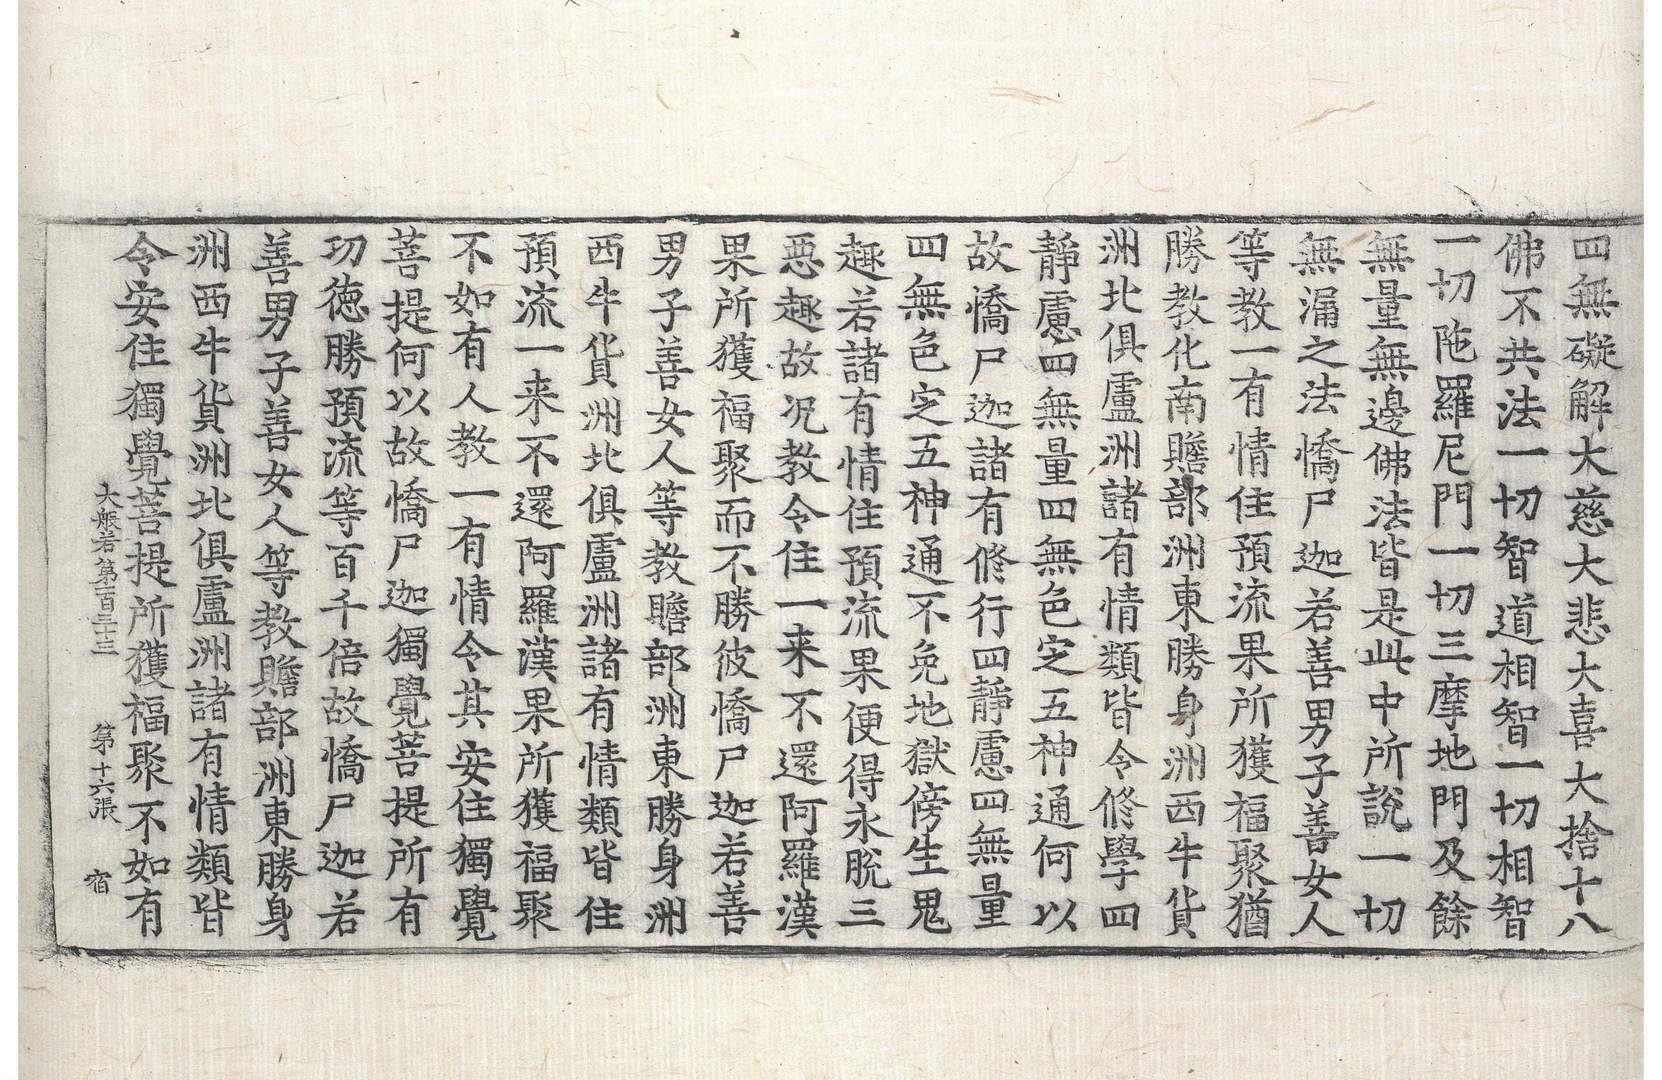 四無礙解大慈大悲大喜大捨十八
佛不共法一切智道相智一切相智
一切陁羅尼門一切三摩地門及餘
無量無邊佛法皆是此中所說一切
無漏之法憍尸迦若善男子善女人
等教一有情住預流果所獲福聚猶
勝教化南贍部洲東勝身洲西牛貨
洲北俱盧洲諸有情類皆令修學四
靜慮四無量四無色定五神通何以
故憍尸迦諸有修行四靜慮四無量
四無色定五神通不免地獄傍生鬼
趣若諸有情住預流果便得永脫三
惡趣故况教令住一来不還阿羅漢
果所獲福聚而不勝彼憍尸迦若善
男子善女人等教贍部洲東勝身洲
西牛貨洲北俱盧洲諸有情類皆住
預流一来不還阿羅漢果所獲福聚
不如有人教一有情令其安住獨覺
菩提何以故憍尸迦獨覺菩提所有
功德勝預流等百千倍故憍尸迦若
善男子善女人等教贍部洲東勝身
洲西牛貨洲北俱盧洲諸有情類皆
令安住獨覺菩提所獲福聚不如有
大般若第一百三十三 第十六張 宿